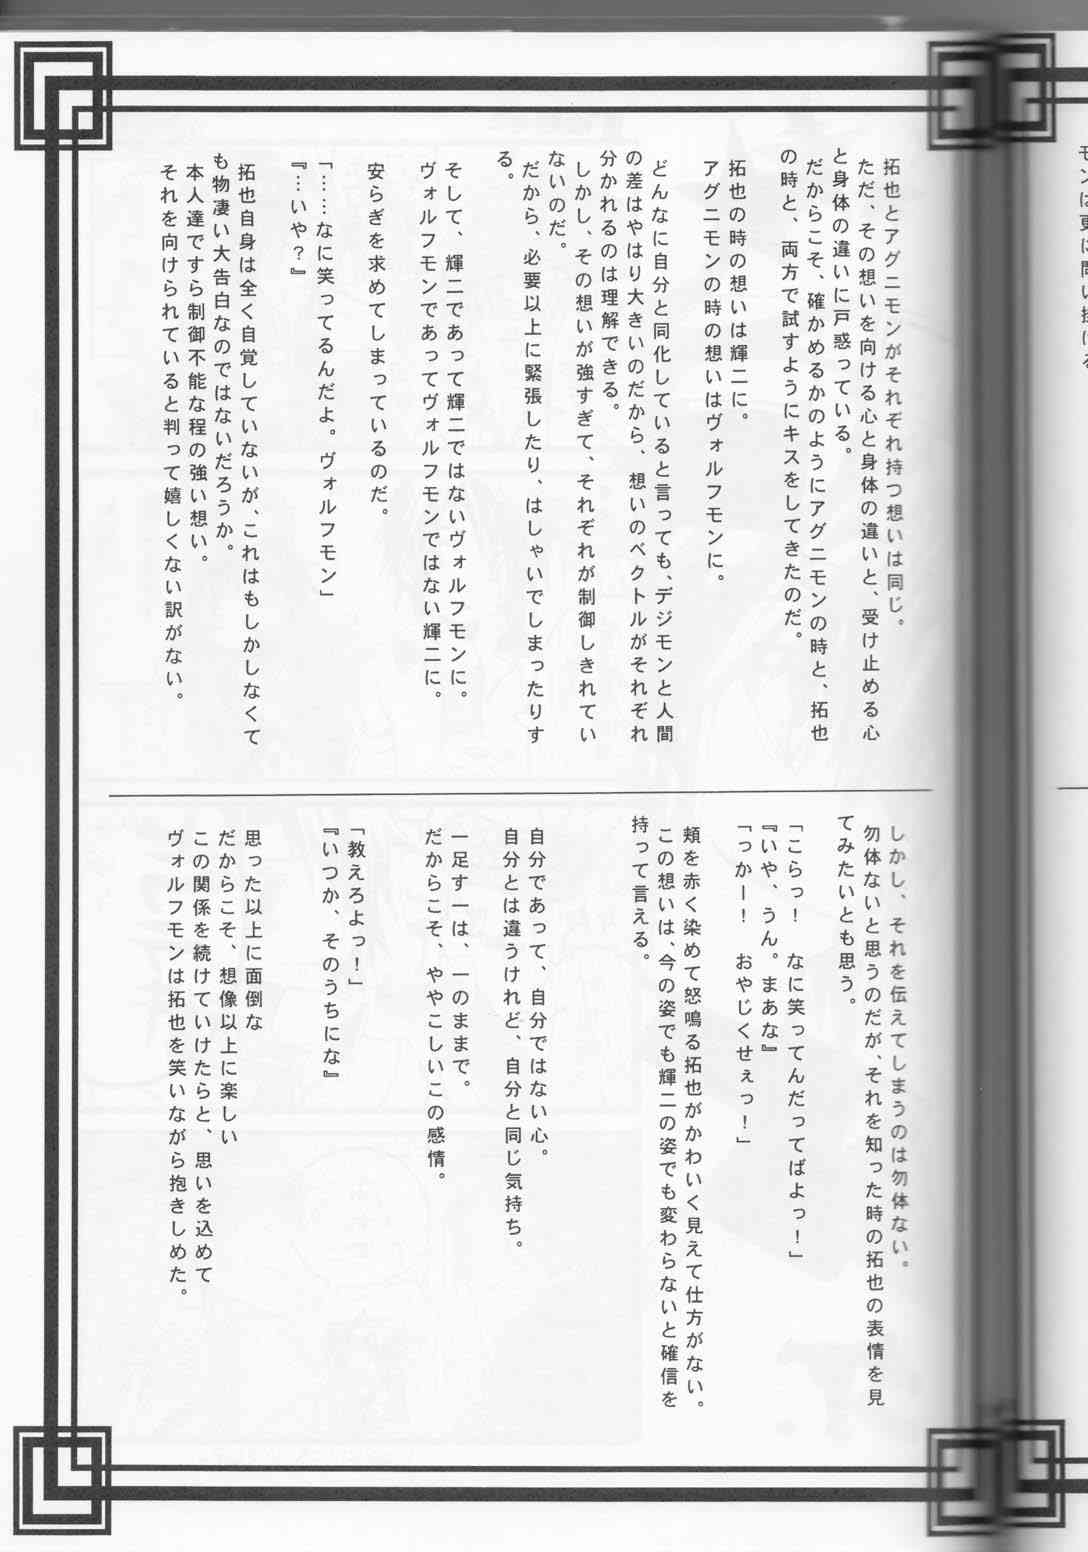 モンは更に問い掛ける
拓也とアグニモンがそれぞれ持つ想いは同じ。
ただ、その想いを向ける心と身体の違いと、受け止める心
と身体の違いに戸惑っている。
だからこそ、確かめるかのようにアグニモンの時と、拓也
の時と、両方で試すようにキスをしてきたのだ。
拓也の時の想いは輝二に。
アグニモンの時の想いはヴォルフモンに。
どんなに自分と同化していると言っても、デジモンと人間
の差はやはり大きいのだから、想いのベクトルがそれぞれ
分かれるのは理解できる。
しかし、その想いが強すぎて、それぞれが制御しきれてい
ないのだ。
だから、必要以上に緊張したり、はしゃいでしまったりす
る。
そして、輝二であって輝二ではないヴォルフモンに。
ヴォルフモンであってヴォルフモンではない輝二に。
安らぎを求めてしまっているのだ。
「……なに笑ってるんだよ。ヴォルフモン」
『…いや？』
拓也自身は全く自覚していないが、これはもしかしなくて
も物凄い大告白なのではないだろうか。
本人達ですら制御不能な程の強い想い。
それを向けられていると判って嬉しくない訳がない。
しかし、それを伝えてしまうのは勿体ない。
勿体ないと思うのだが、それを知った時の拓也の表情を見
てみたいとも思う。
「こらっ！　なに笑ってんだってばよっ！」
『いや、うん。まあな』
「っかー！　おやじくせぇっ！」
頬を赤く染めて怒鳴る拓也がかわいく見えて仕方がない。
この想いは、今の姿でも輝二の姿でも変わらないと確信を
持って言える。
自分であって、自分ではない心。
自分とは違うけれど、自分と同じ気持ち。
一足す一は、一のままで。
だからこそ、ややこしいこの感情。
「教えろよっ！」
『いつか、そのうちにな』
思った以上に面倒な
だからこそ、想像以上に楽しい
この関係を続けていけたらと、思いを込めて
ヴォルフモンは拓也を笑いながら抱きしめた。